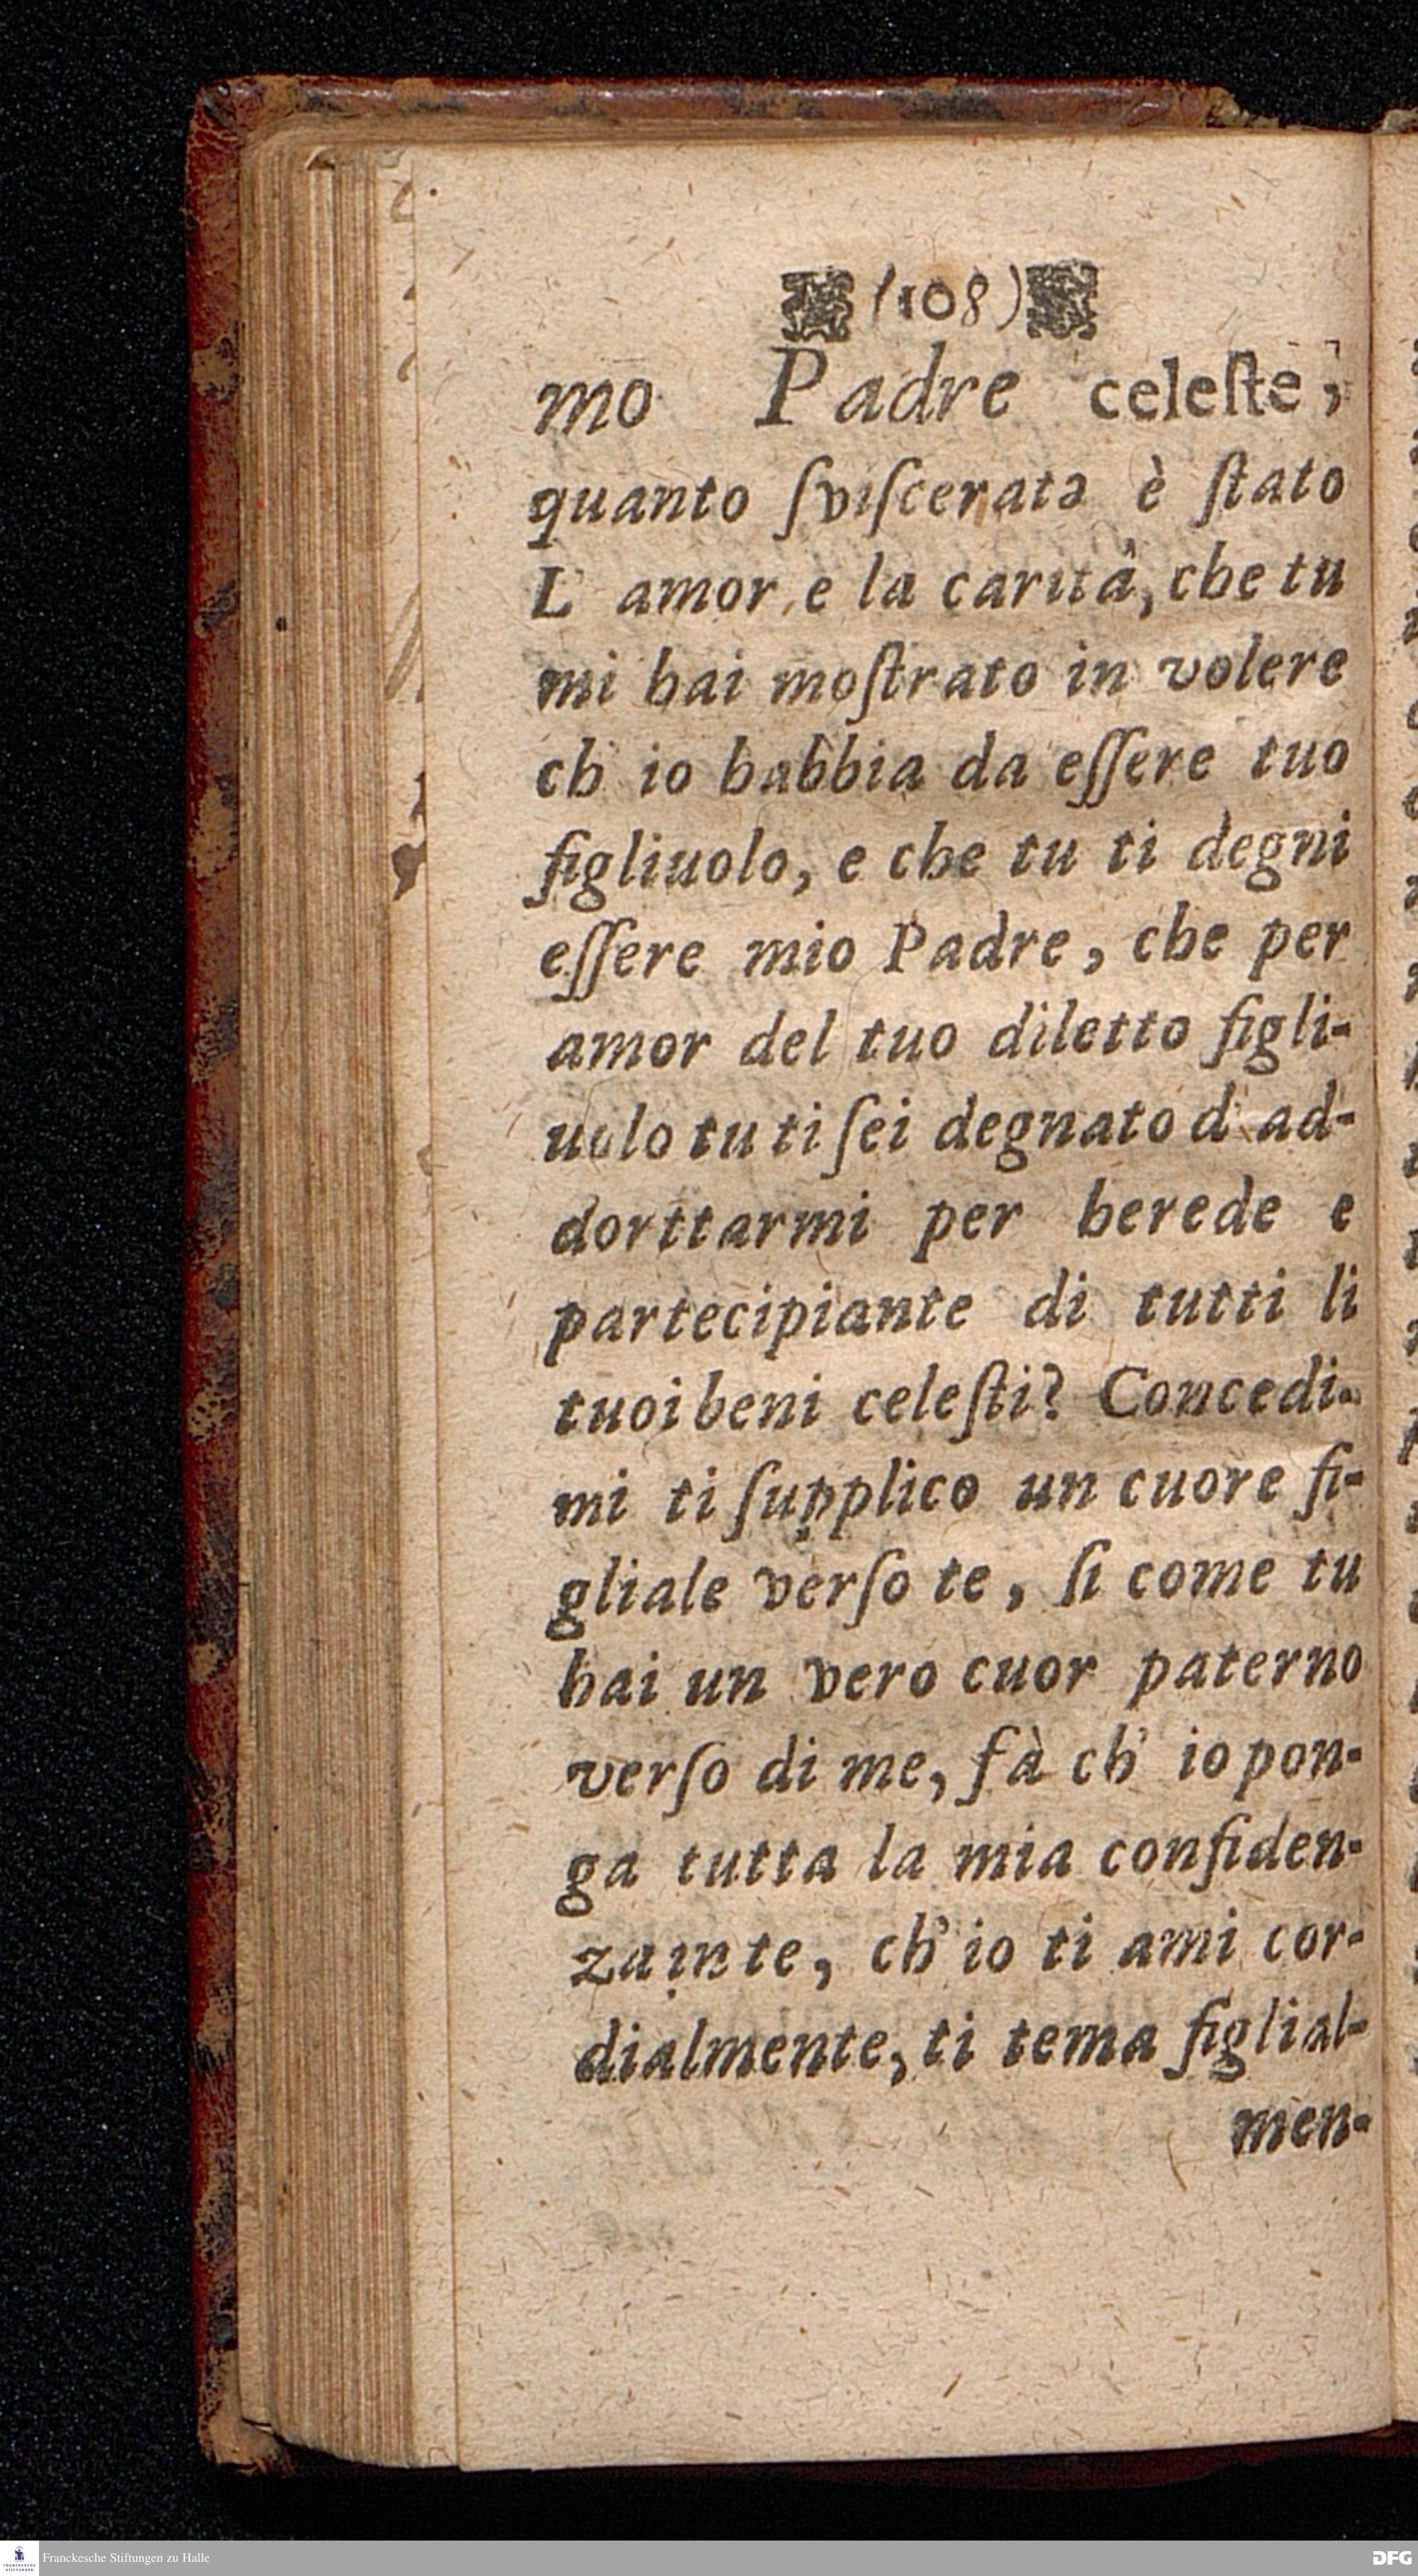 (108)
mo Padre celeſte,
quanto ſviſcerato è ſtato
L' amor, e la carità, che tu
mi hai moſtrato in volere
ch' io habbia da eſſere tuo
figliuolo, e che tu ti degni
eſſere mio Padre, che per
amor del tuo diletto figli-
uolo tu ti ſei degnato d' ad-
dorttarmi per herede e
partecipiante di tutti li
tuoi beni celeſti? Concedi-
mi ti ſupplico un cuore fi-
gliale verſo te, ſi come tu
hai un vero cuor paterno
verſo di me, fà ch' io pon-
ga tutta la mia confiden-
za in te, ch' io ti ami cor-
dialmente, ti tema figlial-
men-
Franckesche Stiftungen zu Halle
DFG